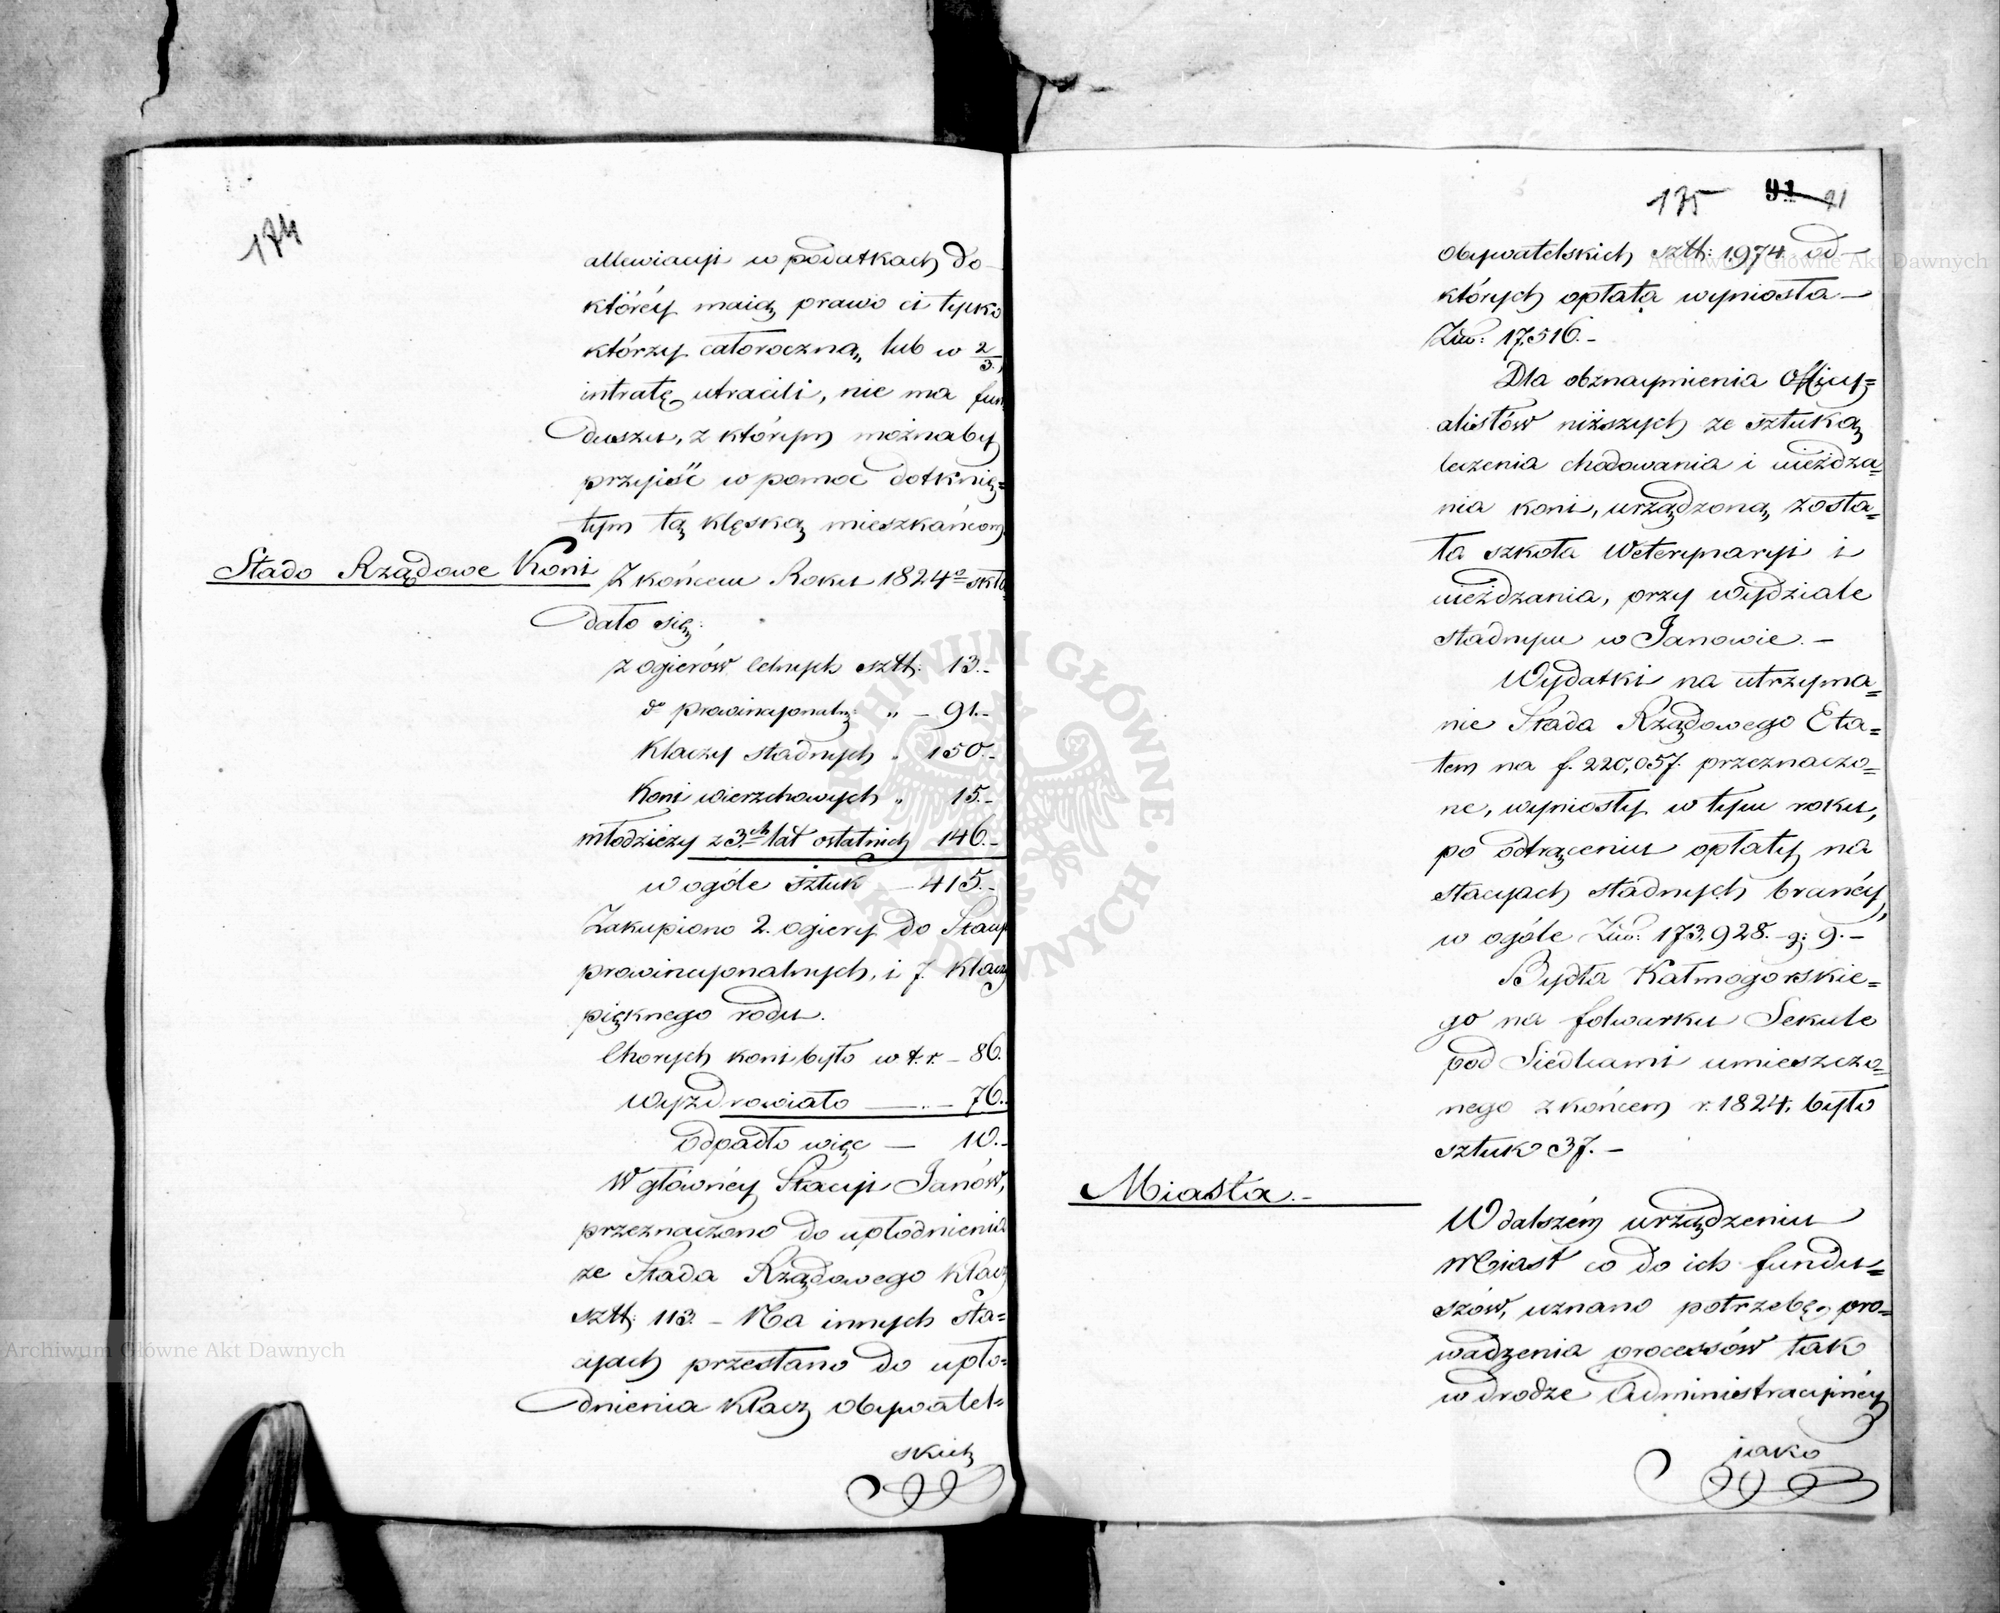 174
allewiacyi w podatkach do
któréy maią prawo ci tylko
którzy całoroczną, lub w 2/3
intratę utracili, nie ma fun
duszu, z którym możnaby
przyiść w pomoc dotknię=
tym tą klęską mieszkańcom
Stado Rządowe Koni
Z końcem Roku 1824º skła
dało się:
z ogierów celnych sztt: 13.-
dº prowincyonaln: " - 91.-
Klaczy stadnych " 150.-
Koni wierzchowych " 15.-
młodzieży z 3ch lat ostatnich 146.-
w ogóle sztuk - 415.-
Zakupiono 2. ogiery do Stacyi
prowincyonalnych, i 7. Klaczy
pięknego rodu.
Chorych koni było w t. r. - 86.
Wyzdrowiało —"— 76.
Odpadło więc — 10.-
W główney Stacyi Janów,
przeznaczono do upłodnienia
ze Stada Rządowego Klacz
sztt: 113. - Na innych Sta=
cyach przestano do upło=
dnienia Klacz obywatel=
skich
175 91 91
obywatelskich sztt: 1974. od —
których opłata wyniosła —
Złw: 17,516.-
Dla obznaymienia Officy=
alistów niższych ze sztuką
leczenia chodowania i uieżdża=
nia koni, urządzoną, zosta=
ła szkoła Weterynaryi i
uieżdżania, przy Wydziale
stadnym w Janowie. -
Wydatki na utrzyma=
nie Stada Rządowego Eta=
tem na f. 220,057. przeznaczo=
ne, wyniosły w tym roku,
po odtrąceniu opłaty na
stacyach stadnych branéy,
w ogóle Złw: 173,928. g: 9.-
Bydła Kałmogorskie=
go na folwarku Sekule
pod Siedlcami umieszczo=
nego z końcem r. 1824. było
sztuk 37. -
Miasta.-
W dalszém urządzeniu
Miast co do ich fundu=
szów, uznano potrzebę pro=
wadzenia processów tak
w drodze Administracyinéy
iako
Archiwum Główne Akt Dawnych
Archiwum Główne Akt Dawnych
ARCHIWUM GŁÓWNE AKT DAWNYCH